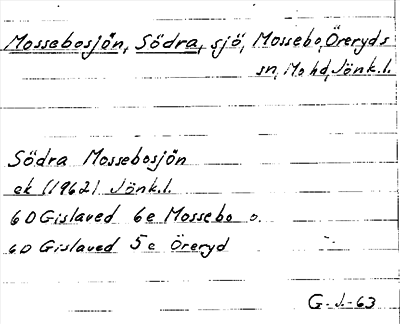 Mossebosjön, Södra, sjö, Mossebo, Öreryds
sn, Mo hd, Jönk.l.
Södra Mossebosjön
ek (1962) Jönk.l.
6D Gislaved 6e Mossebo o.
6D Gislaved 5e Öreryd
G.J.-63